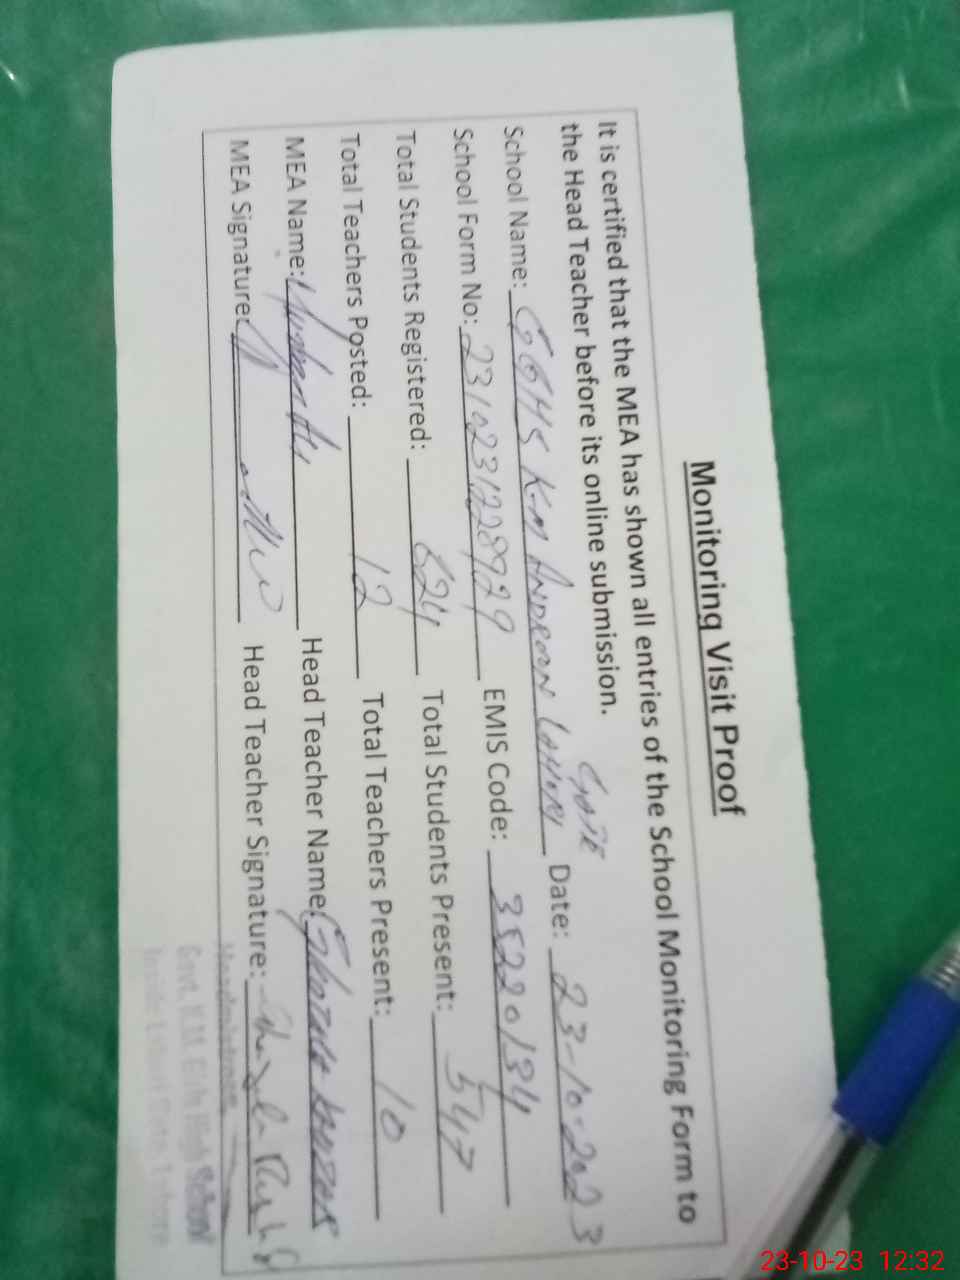 Monitoring Visit Proof
It is certified that the MEA has shown all entries of the School Monitoring Form to
the Head Teacher before its online submission.
School Name: GGHS K-M ANDRON LAHORI GATE Date: 23-10-2023
School Form No: 2310231228929 EMIS Code: 35220134
Total Students Registered: 624 Total Students Present: 547
Total Teachers Posted: 12 Total Teachers Present: 10
MEA Name: Head Teacher Name:
MEA Signature: Head Teacher Signature:
Headmistress
Govt. K.M. Girls High School
Inside Lohari Gate, Lahore
23-10-23 12:32